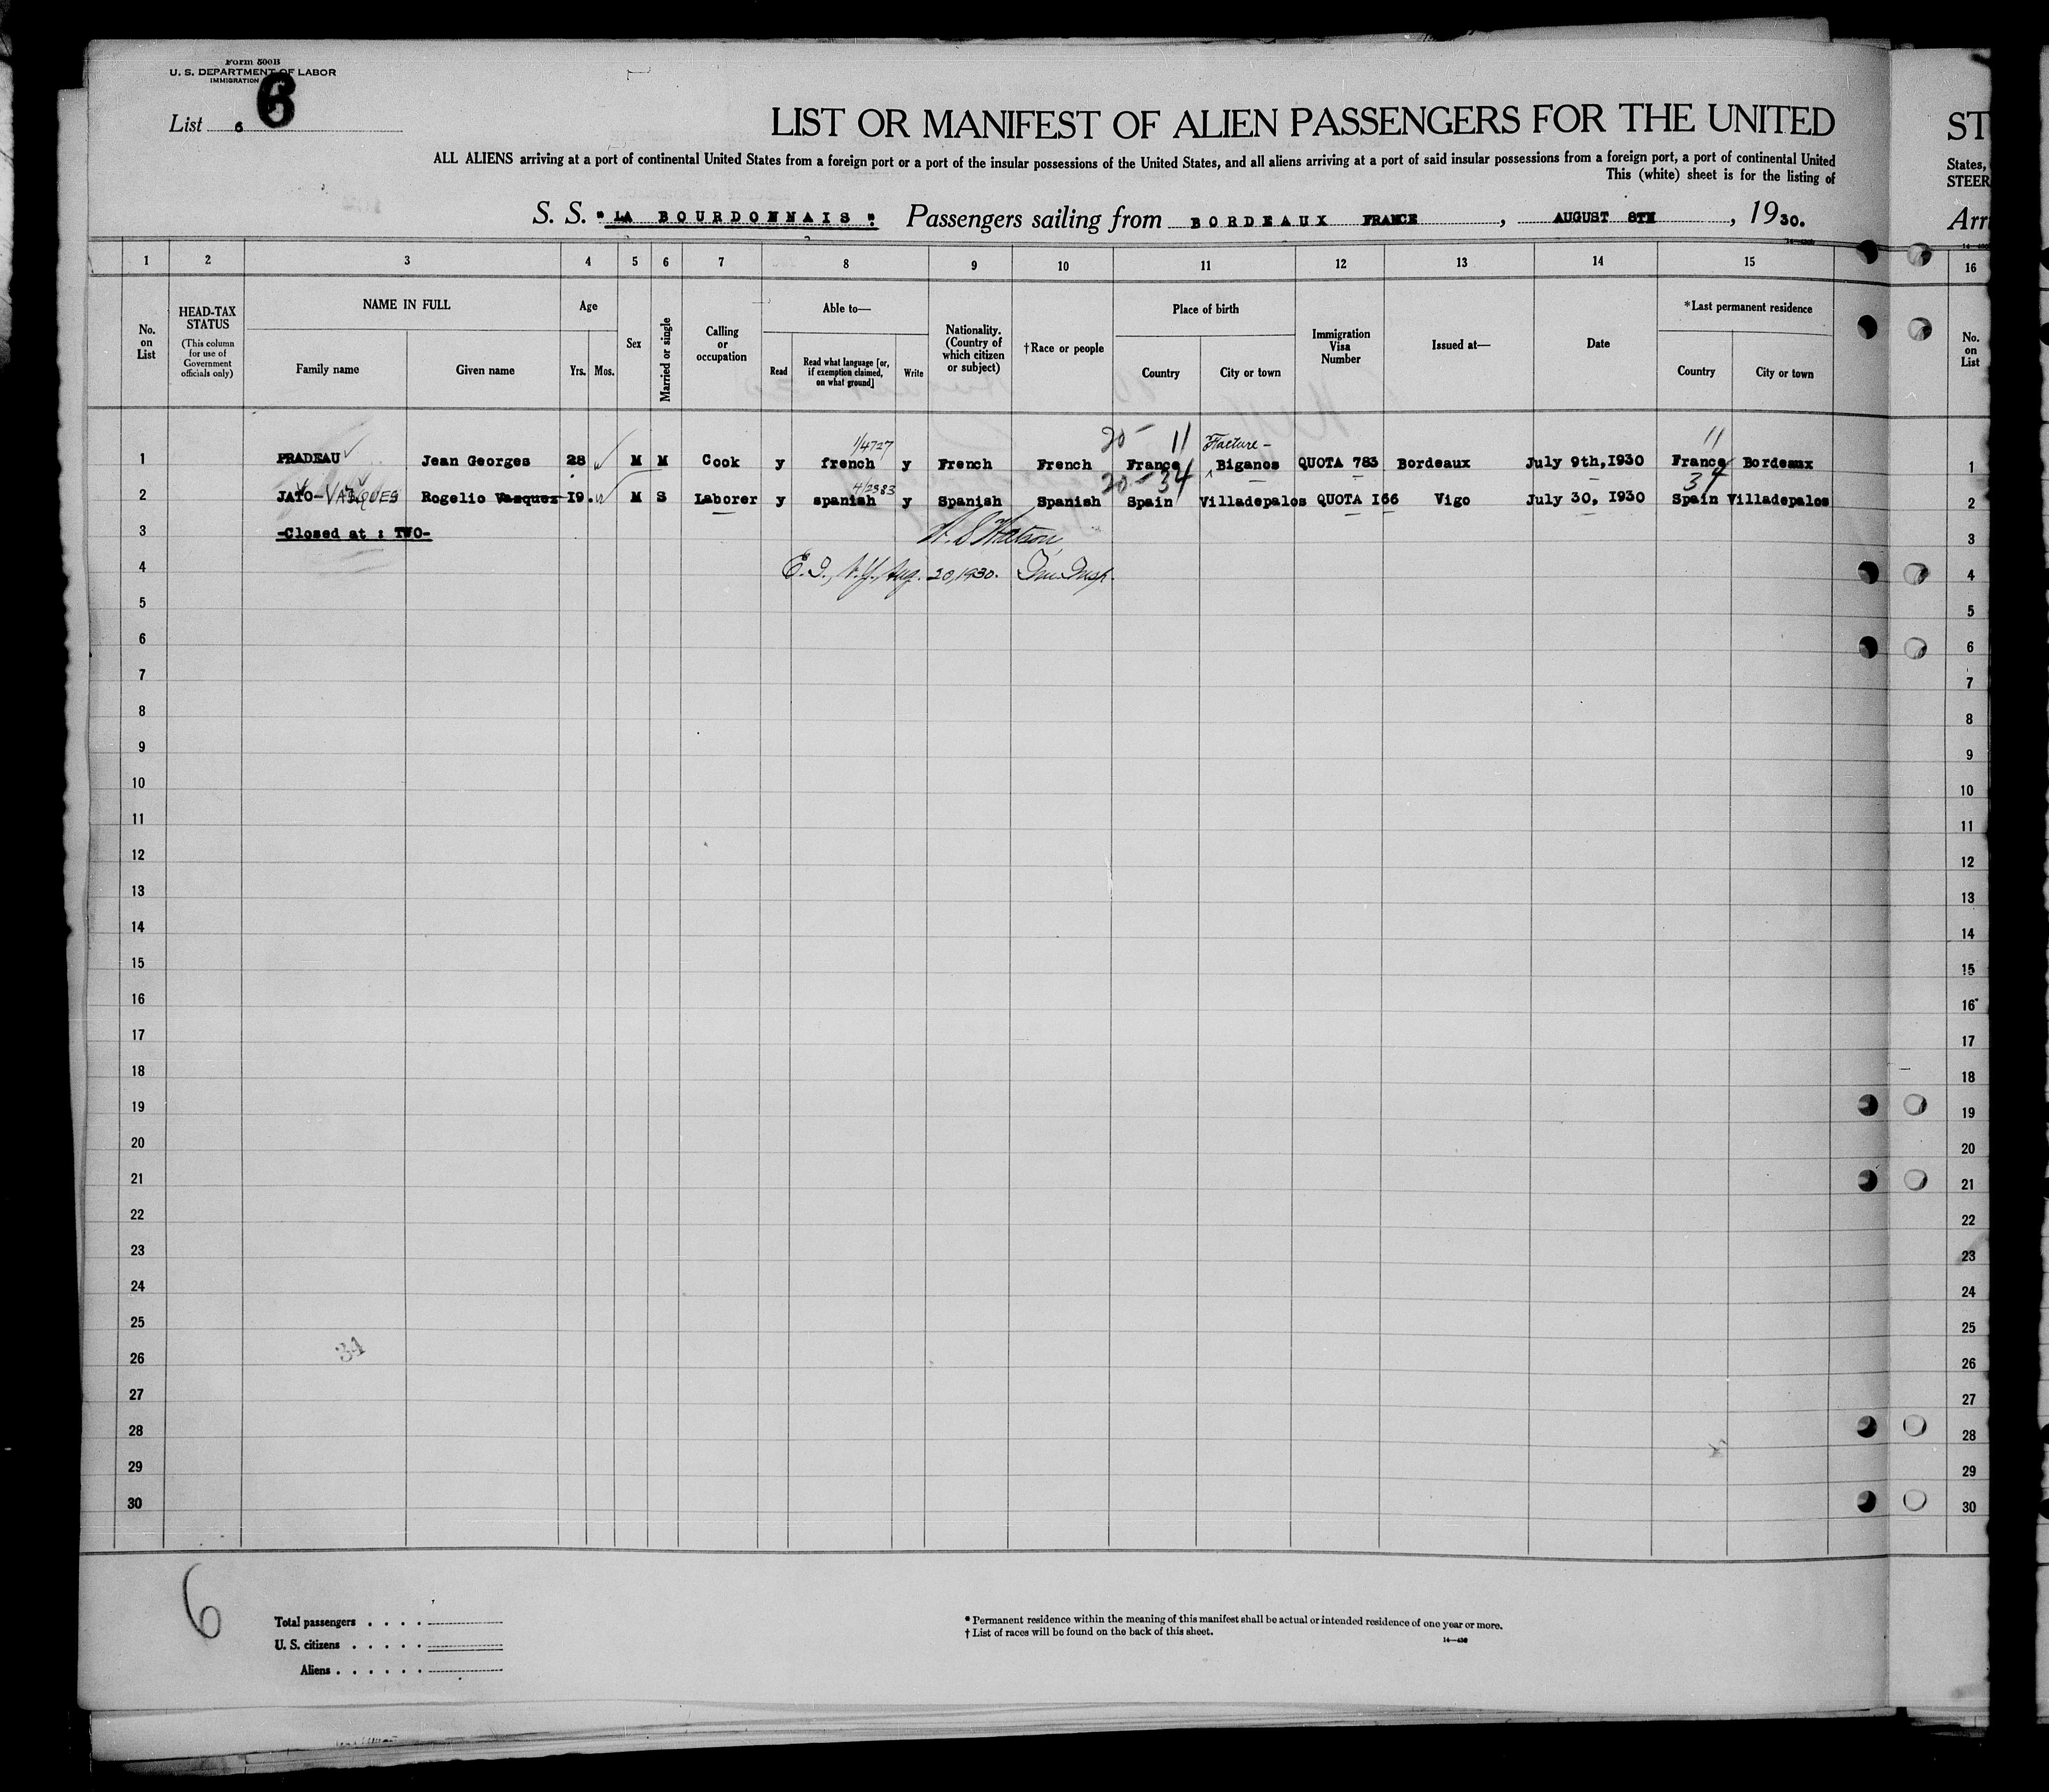 Form 500B
U. S. DEPARTMENT OF LABOR
IMMIGRATION
List 6 6
LIST OR MANIFEST OF ALIEN PASSENGERS FOR THE UNITED ST
ALL ALIENS arriving at a port of continental United States from a foreign port or a port of the insular possessions of the United States, and all aliens arriving at a port of said insular possessions from a foreign port, a port of continental United States,
This (white) sheet is for the listing of STEER
S. S. "LA BOURDONNAIS". Passengers sailing from BORDEAUX FRANCE, AUGUST 8TH, 1930. Arri
1 2 3 4 5 6 7 8 9 10 11 12 13 14 15 16
No. on List
HEAD-TAX STATUS (This column for use of Government officials only)
NAME IN FULL Family name Given name
Age Yrs. Mos.
Sex
Married or single
Calling or occupation
Able to— Read Read what language [or, if exemption claimed, on what ground] Write
Nationality. (Country of which citizen or subject)
†Race or people
Place of birth Country City or town
Immigration Visa Number
Issued at—
Date
*Last permanent residence Country City or town
No. on List
1/4727 20 - 11 Facture - 11
1 PRADEAU Jean Georges 28 M M Cook y french y French French France Biganos QUOTA 783 Bordeaux July 9th,1930 France Bordeaux 1
4/2383 20 - 34 34
2 JATO-VASQUES Rogelio Vasques I9. M S Laborer y spanish y Spanish Spanish Spain Villadepalos QUOTA I66 Vigo July 30, I930 Spain Villadepalos 2
3 -Closed at : TWO- W. S. Watson 3
4 E. I., N.Y., Aug. 20, 1930. Imm. Insp. 4
5 5
6 6
7 7
8 8
9 9
10 10
11 11
12 12
13 13
14 14
15 15
16 16
17 17
18 18
19 19
20 20
21 21
22 22
23 23
24 24
25 25
34
26 26
27 27
28 28
29 29
30 30
6
Total passengers . . . .
U. S. citizens . . . . .
Aliens . . . . . .
* Permanent residence within the meaning of this manifest shall be actual or intended residence of one year or more.
† List of races will be found on the back of this sheet.
14—430